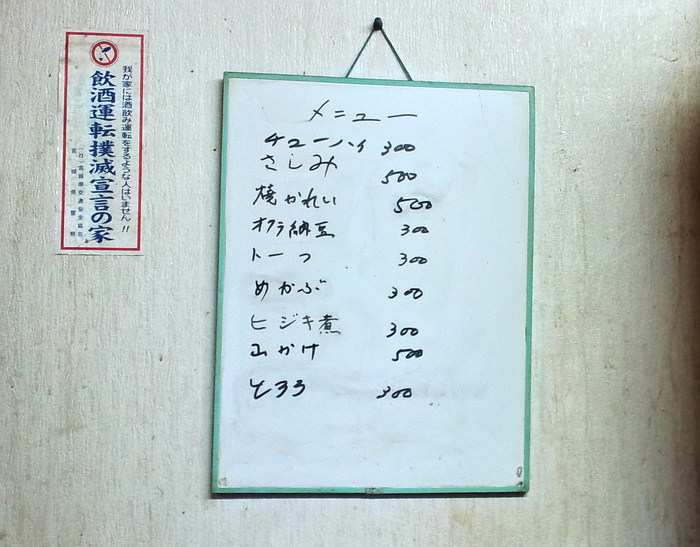 我が家には酒飲み運転をするような人はいません!!
飲酒運転撲滅宣言の家
(社)宮城県交通安全協会
宮城県警察
メニュー
チューハイ 300
さしみ 500
焼かれい 500
オクラ納豆 300
トーフ 300
めかぶ 300
ヒジキ煮 300
山かけ 500
とろろ 300